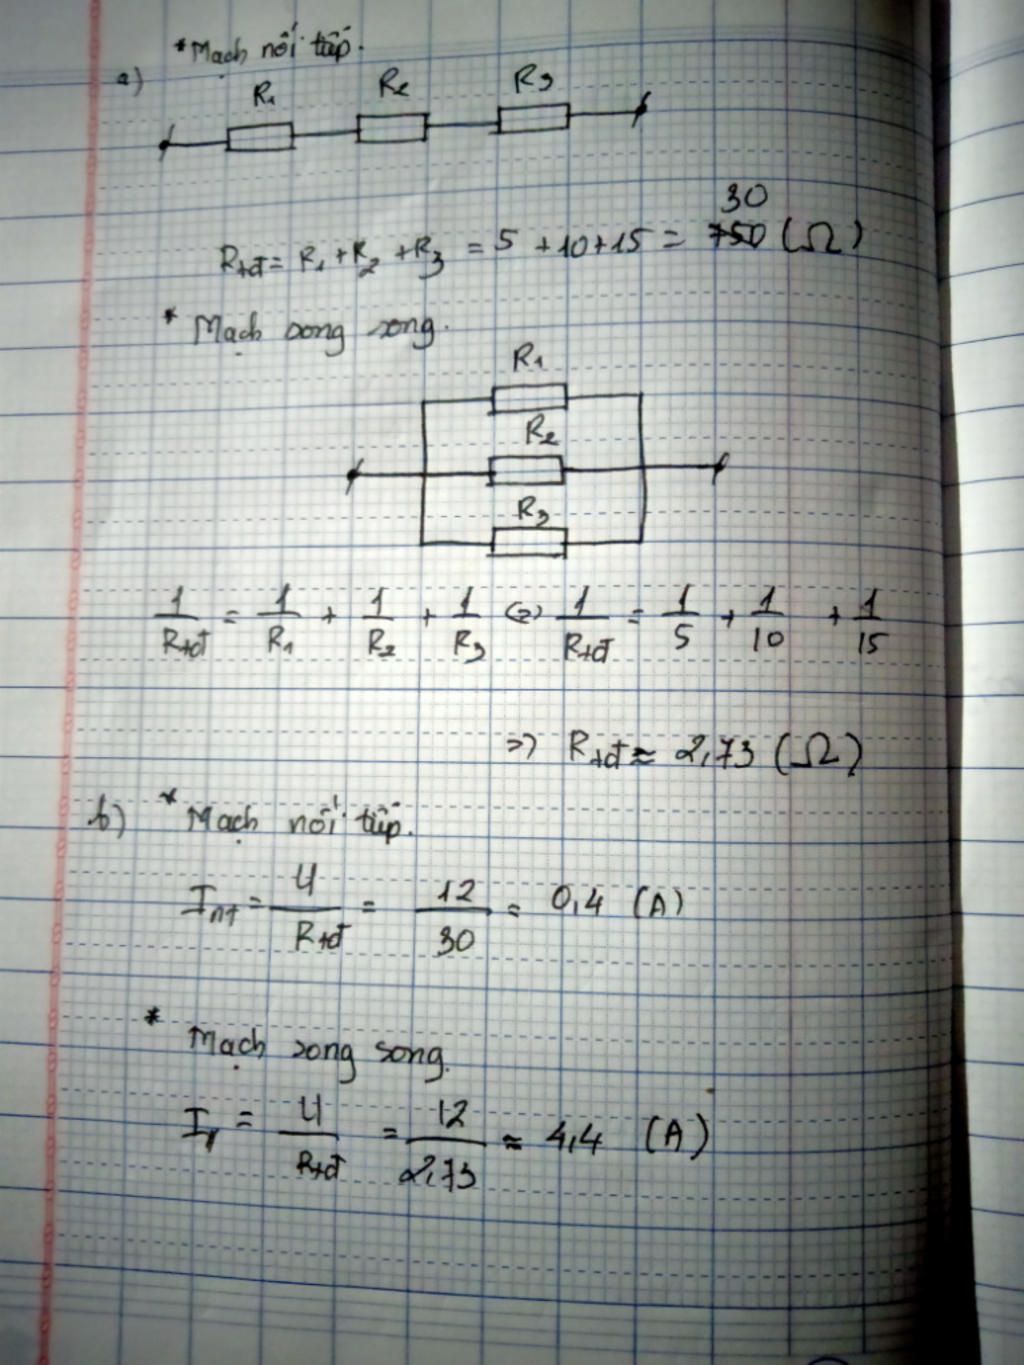 * Mạch nối tiếp.
a)
R1 R2 R3
30
Rtđ = R1 + R2 + R3 = 5 + 10 + 15 = 750 (Ω)
* Mạch song song.
R1
R2
R3
1/Rtđ = 1/R1 + 1/R2 + 1/R3 (=) 1/Rtđ = 1/5 + 1/10 + 1/15
=> Rtđ ≈ 2,73 (Ω)
b) * Mạch nối tiếp.
Int = U/Rtđ = 12/30 = 0,4 (A)
* Mạch song song.
I// = U/Rtđ = 12/2,73 ≈ 4,4 (A)